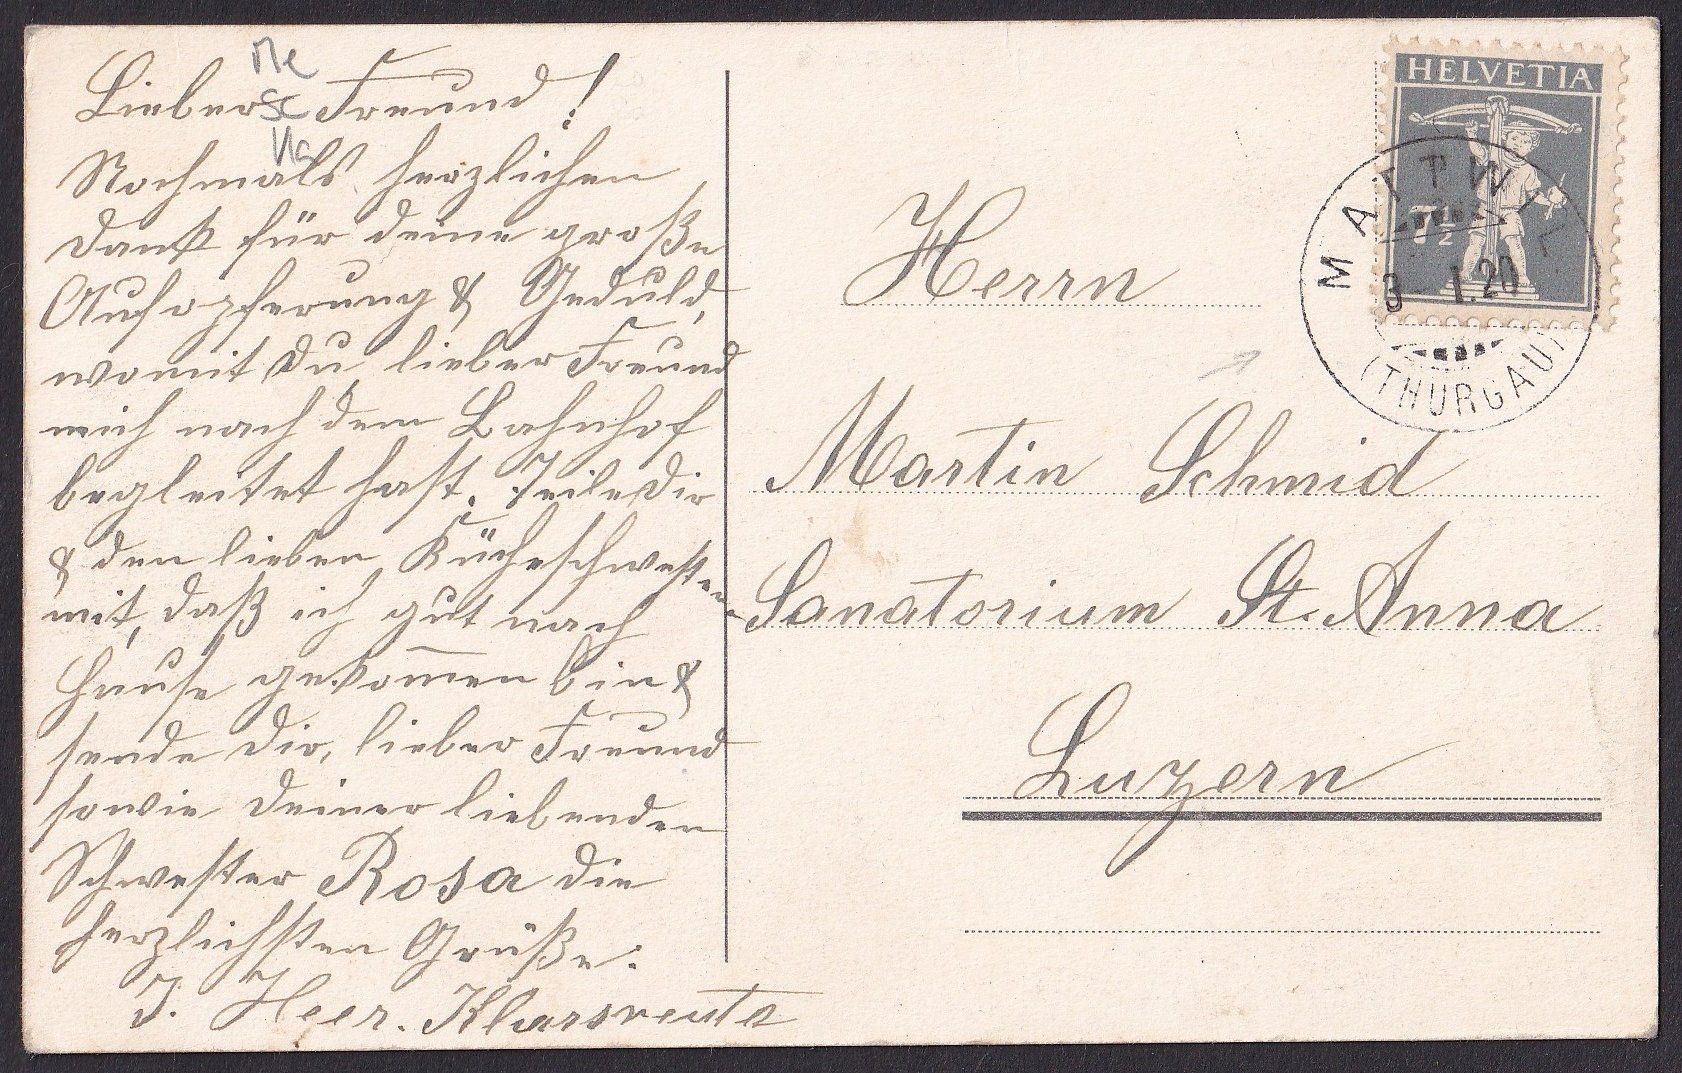 Lieber Freund!
Nochmals herzlichen
Dank für deine große
Aufopferung & Geduld,
womit Du lieber Freund
mich nach dem Bahnhof
begleitet hast. Teile Dir
& den lieben Kücheschwestern
mit, daß ich gut nach
Hause gekom̄en bin &
sende Dir, lieber Freund
sowie Deiner liebenden
Schwester Rosa die
herzlichsten Grüße.
J. Heer. Klarsreute
HELVETIA
7½
MATTWIL
3. I. 20
(THURGAU)
Herrn
Martin Schmid
Sanatorium St. Anna
Luzern